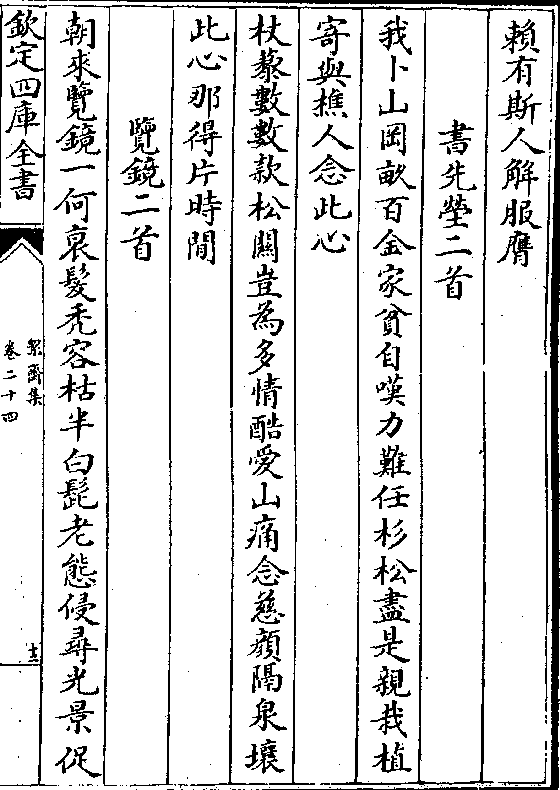 賴有斯人解服膺
書先塋二首
我卜山岡畝百金家貧自嘆力難任杉松盡是親栽植
寄與樵人念此心
杖藜數數款松關豈為多情酷愛山痛念慈顔隔泉壤
此心那得片時閒
覽鏡二首
朝來覽鏡一何衰髮禿容枯半白髭老態侵尋光景促
欽定四庫全書
絜齋集
卷二十四
十三